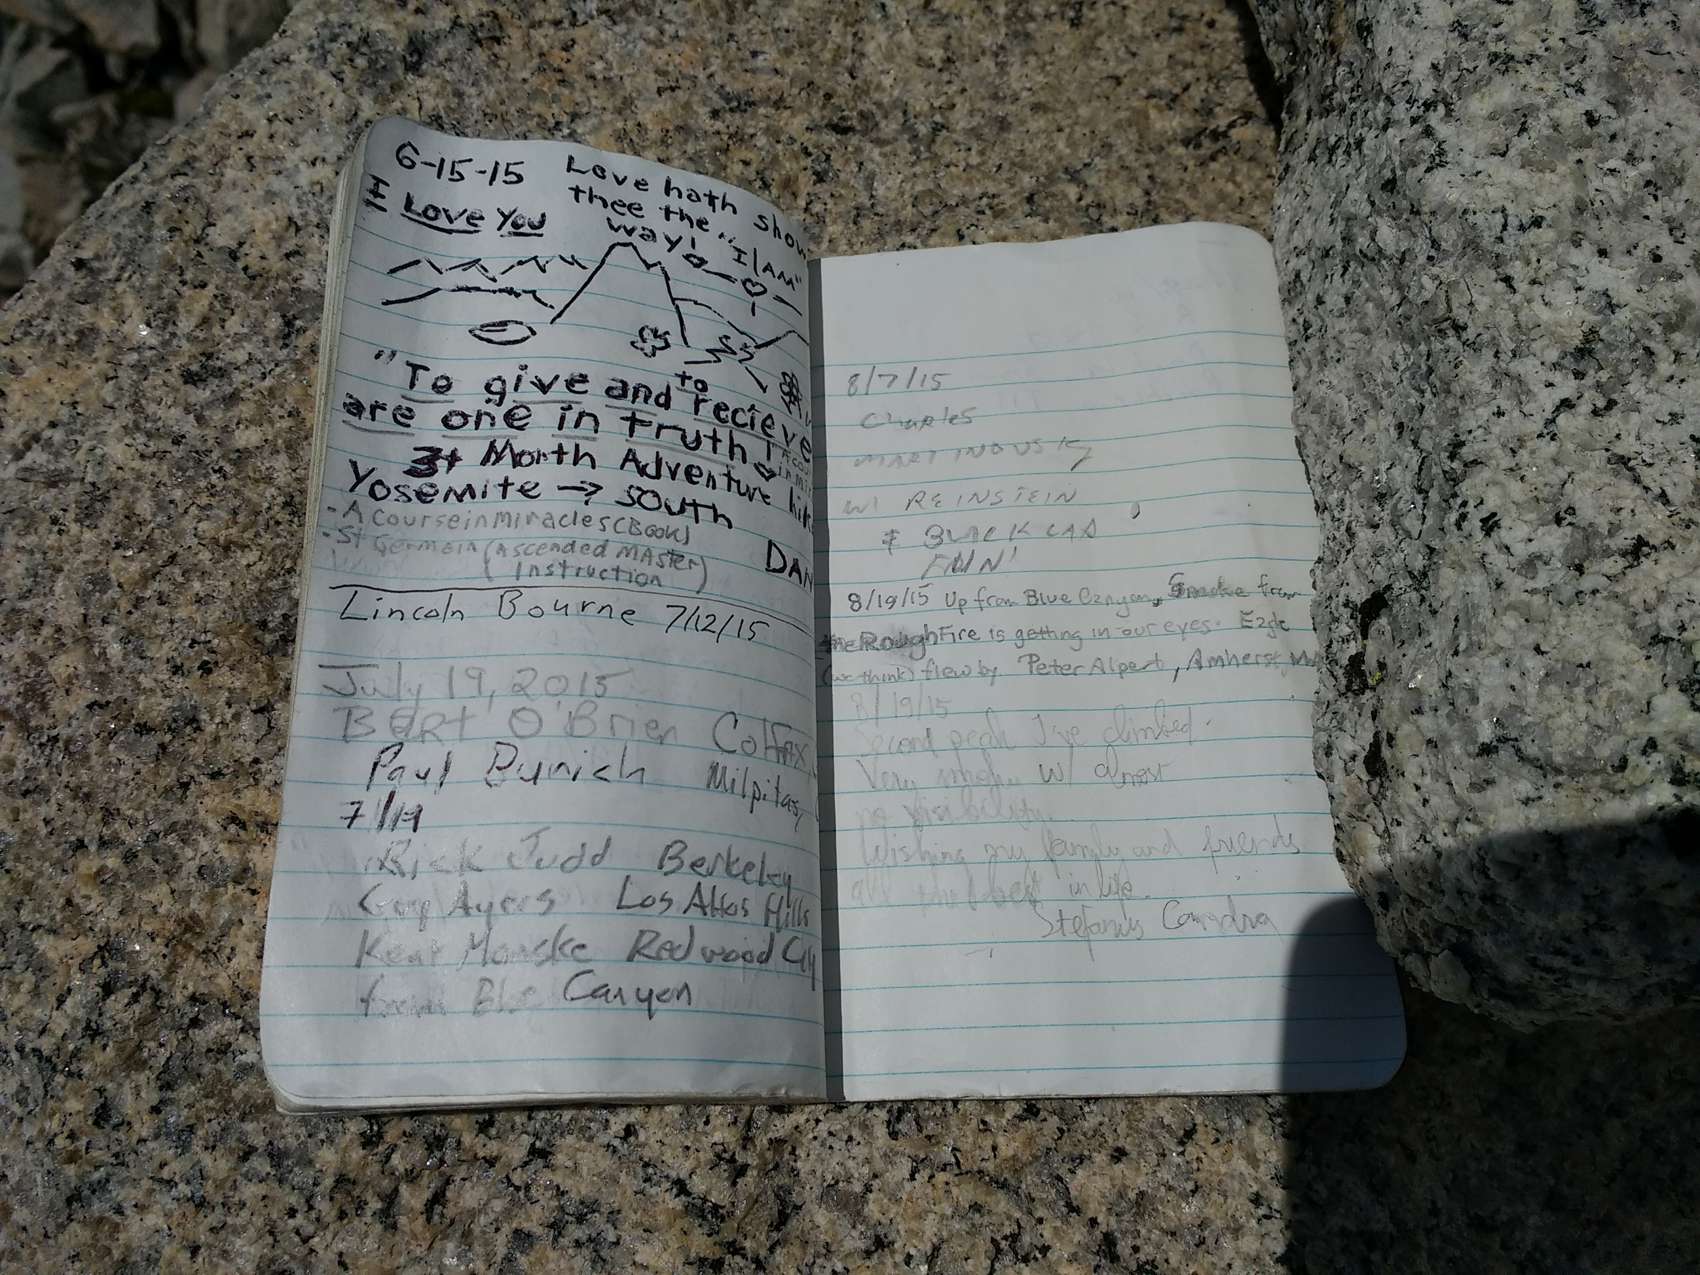 6-15-15 Love hath show
thee the
way!
I Love You
"I AM"
"To give and to recieve
are one in truth!
3+ Month Adventure hike
Yosemite → South
- A course in miracles (Book)
- St Germain (Ascended MAster)
Instruction
DAN
Lincoln Bourne 7/12/15
July 19, 2015
BART O'Brien Colfax
Paul Milpitas,
7/19
Rick Judd Berkeley
Guy Ayers Los Altos Hills
Redwood City
from Blue Canyon
8/7/15
Charles
MARTINOVSKY
w/ REINSTEIN
& BLACK LAB
FINN!
8/19/15 Up from Blue Canyon, Smoke from
the Rough Fire is getting in our eyes. Eagle
(we think) flew by Peter Alpert, Amherst, MA
8/19/15
Second peak I've climbed.
Very smoky w/ almost
no visibility.
Wishing my family and friends
all the best in life.